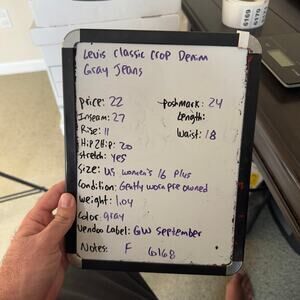 6169
6170
Levis Classic Crop Denim
Gray Jeans
price: 22
poshmark: 24
Inseam: 27
Length:
Rise: 11
Waist: 18
Hip2Hip: 20
stretch: yes
Size: US women's 16 Plus
Condition: Gently worn pre owned
weight: 1.04
Color: gray
Vendoo Label: GW September
Notes: F 6168